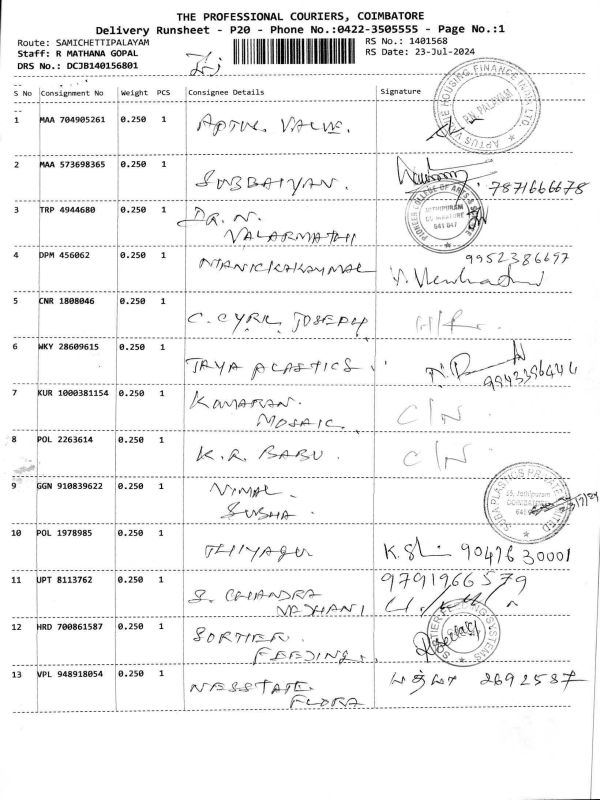 THE PROFESSIONAL COURIERS, COIMBATORE
Delivery Runsheet - P20 - Phone No.:0422-3505555 - Page No.:1
Route: SAMICHETTIPALAYAM
RS No.: 1401568
Staff: R MATHANA GOPAL
RS Date: 23-Jul-2024
DRS No.: DCJB140156801
S No Consignment No Weight PCS Consignee Details Signature
1 MAA 704905261 0.250 1 APTUS VALUE.
2 MAA 573698365 0.250 1 SUBBAIYAN. 7871666678
3 TRP 4944680 0.250 1 DR. N.
VALARMATHI
4 DPM 456062 0.250 1 MANICKAKAMMAL 9952386697
5 CNR 1808046 0.250 1 C. CYRIL JOSEPH
6 WKY 28609615 0.250 1 JAYA PLASTICS. 9943396446
7 KUR 1000381154 0.250 1 KUMARAN. C/N
MOSAIC.
8 POL 2263614 0.250 1 K.R. BABU. C/N
9 GGN 910839622 0.250 1 VIMAL
SUSHA.
10 POL 1978985 0.250 1 THIYAGU 9047630001
11 UPT 8113762 0.250 1 S. CHANDRA 9791966579
VADHANI
12 HRD 700861587 0.250 1 SORTIER.
FEEDING.
13 VPL 948918054 0.250 1 NESSTATE 2692587
FLORA